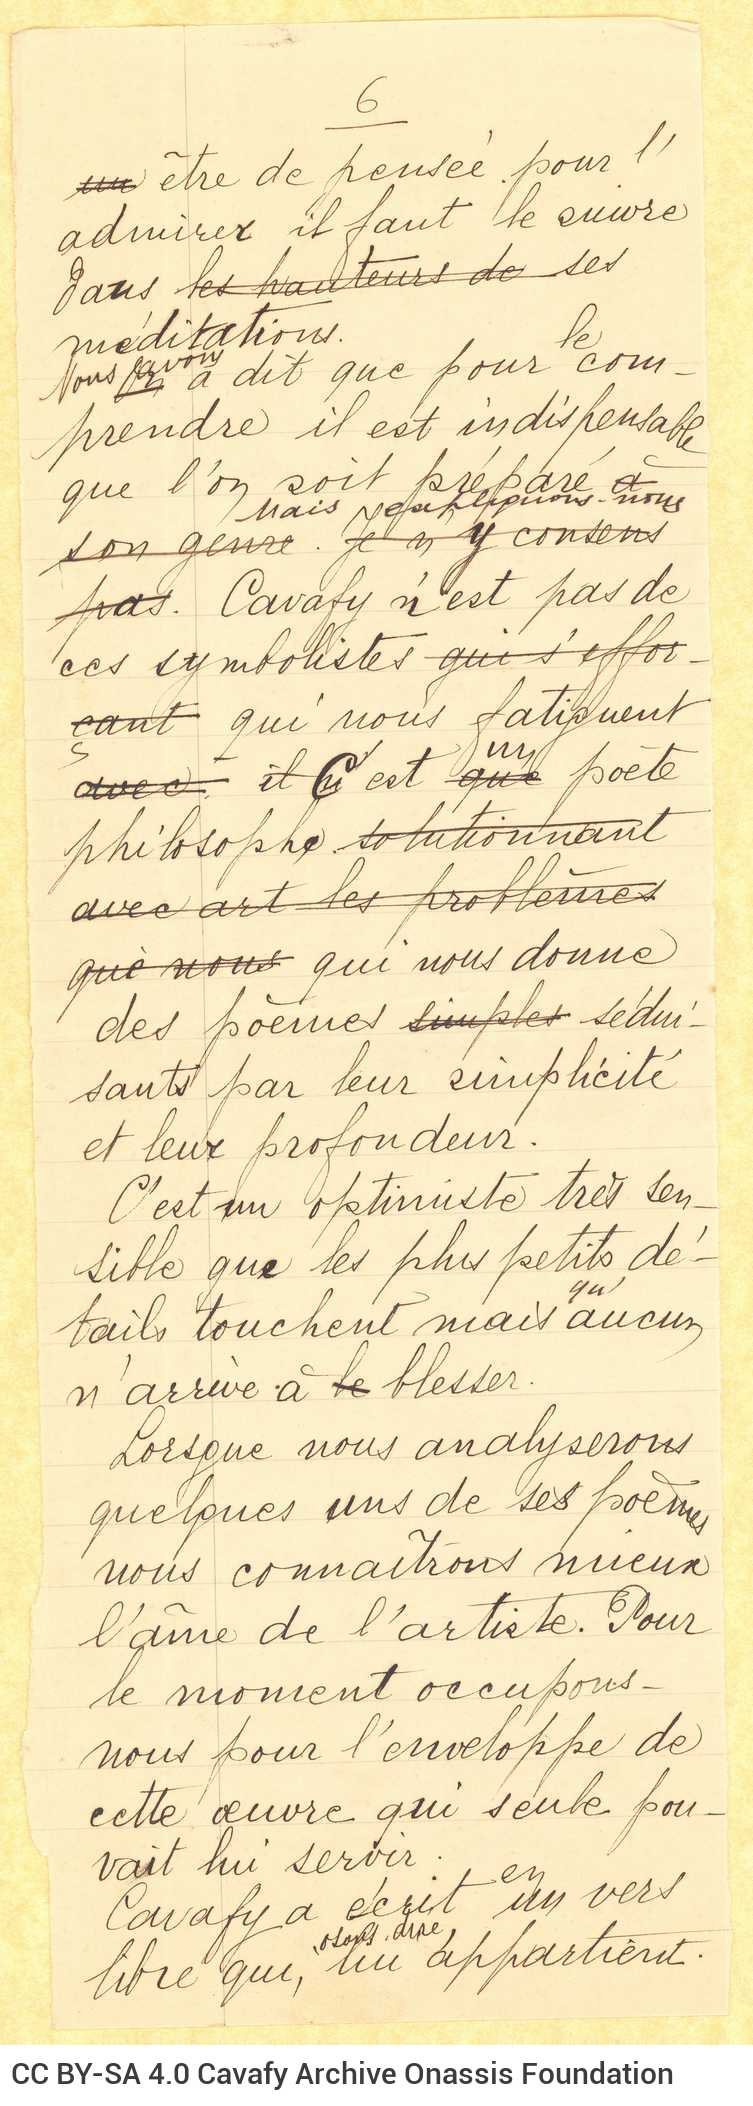 6
un être de pensée. pour l'
admirer il faut le suivre
dans les hauteurs de ses
méditations.
Nous avons
a dit que pour le com-
prendre il est indispensable
que l'on soit préparé à
Mais expliquons-nous
son genre. Je n'y consens
pas. Cavafy n'est pas de
ces symbolistes qui s'effor-
cant qui nous fatiguent
avec il C'est que un poète
philosophe solutionnant
avec art les problèmes
que nous qui nous donne
des poèmes simples sédui-
sants par leur simplicité
et leur profondeur.
C'est un optimiste très sen-
sible que les plus petits dé-
tails touchent mais qu'aucun
n'arrive à le blesser.
Lorsque nous analyserons
quelques uns de ses poèmes
nous connaîtrons mieux
l'âme de l'artiste. Pour
le moment occupons-
nous pour l'enveloppe de
cette œuvre qui seule pou-
vait lui servir.
Cavafy a écrit en un vers
libre qui, osons dire, lui appartient.
CC BY-SA 4.0 Cavafy Archive Onassis Foundation